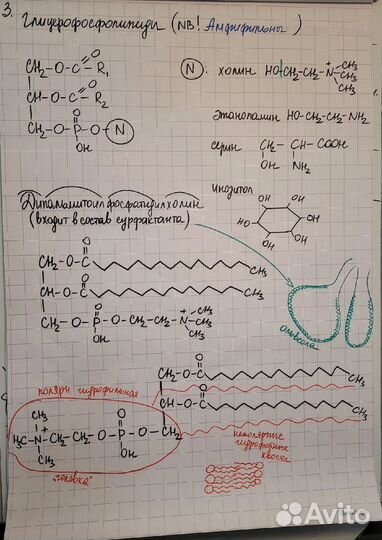 3.
Глицерофосфолипиды (NB! Амфифильны)
CH₂-O-C=O R₁
CH-O-C=O R₂
CH₂-O-P=O-O-N
OH
N : холин HO-CH₂-CH₂-N⁺ CH₃ CH₃ CH₃
этаноламин HO-CH₂-CH₂-NH₂
серин CH₂-CH-COOH
OH NH₂
инозитол
OH OH
HO OH
HO OH
Дипальмитоилфосфатидилхолин
(входит в состав сурфактанта)
O
CH₂-O-C CH₃
O
CH-O-C CH₃
O
CH₂-O-P-O-CH₂-CH₂-N⁺ CH₃ CH₃ CH₃
OH
альвеола
полярн. гидрофильная
O
CH₂-O-C CH₃
O
CH-O-C CH₃
CH₃ O
H₃C-N⁺-CH₂-CH₂-O-P-O-CH₂
CH₃ OH
"головка"
неполярные
гидрофобные
хвосты
Avito